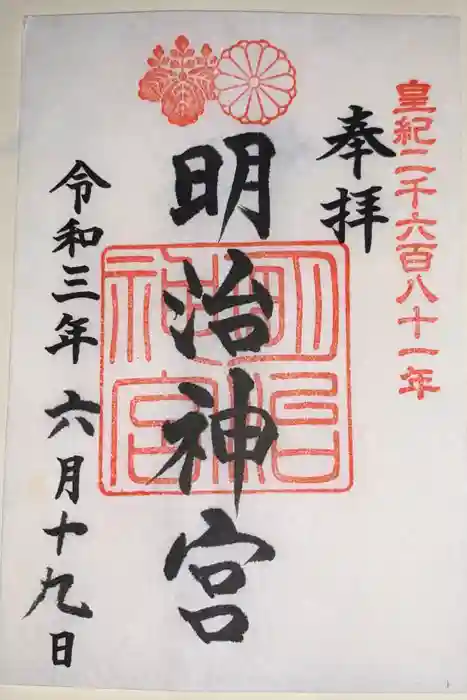 皇紀二千六百八十一年
奉拝
明治神宮
明治
神宮
令和三年六月十九日